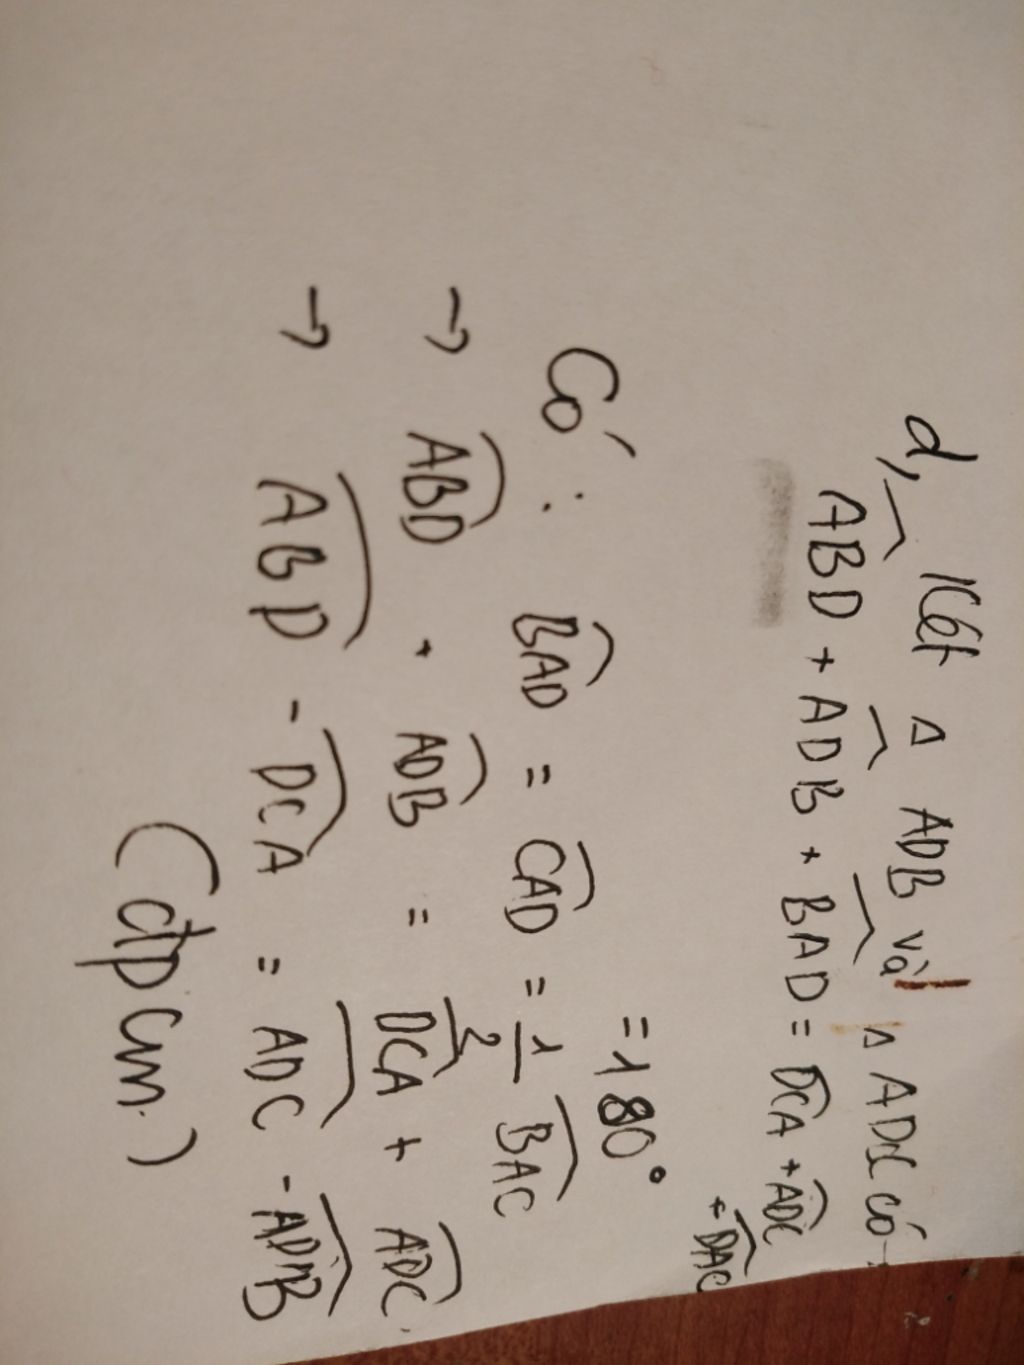 d, Xét Δ ADB và Δ ADC có
ABD + ADB + BAD = DCA + ADC
+ DAC
= 180°
Có : BAD = CAD = 1/2 BAC
→ ABD + ADB = DCA + ADC
→ ABD - DCA = ADC - ADB
(đpcm.)